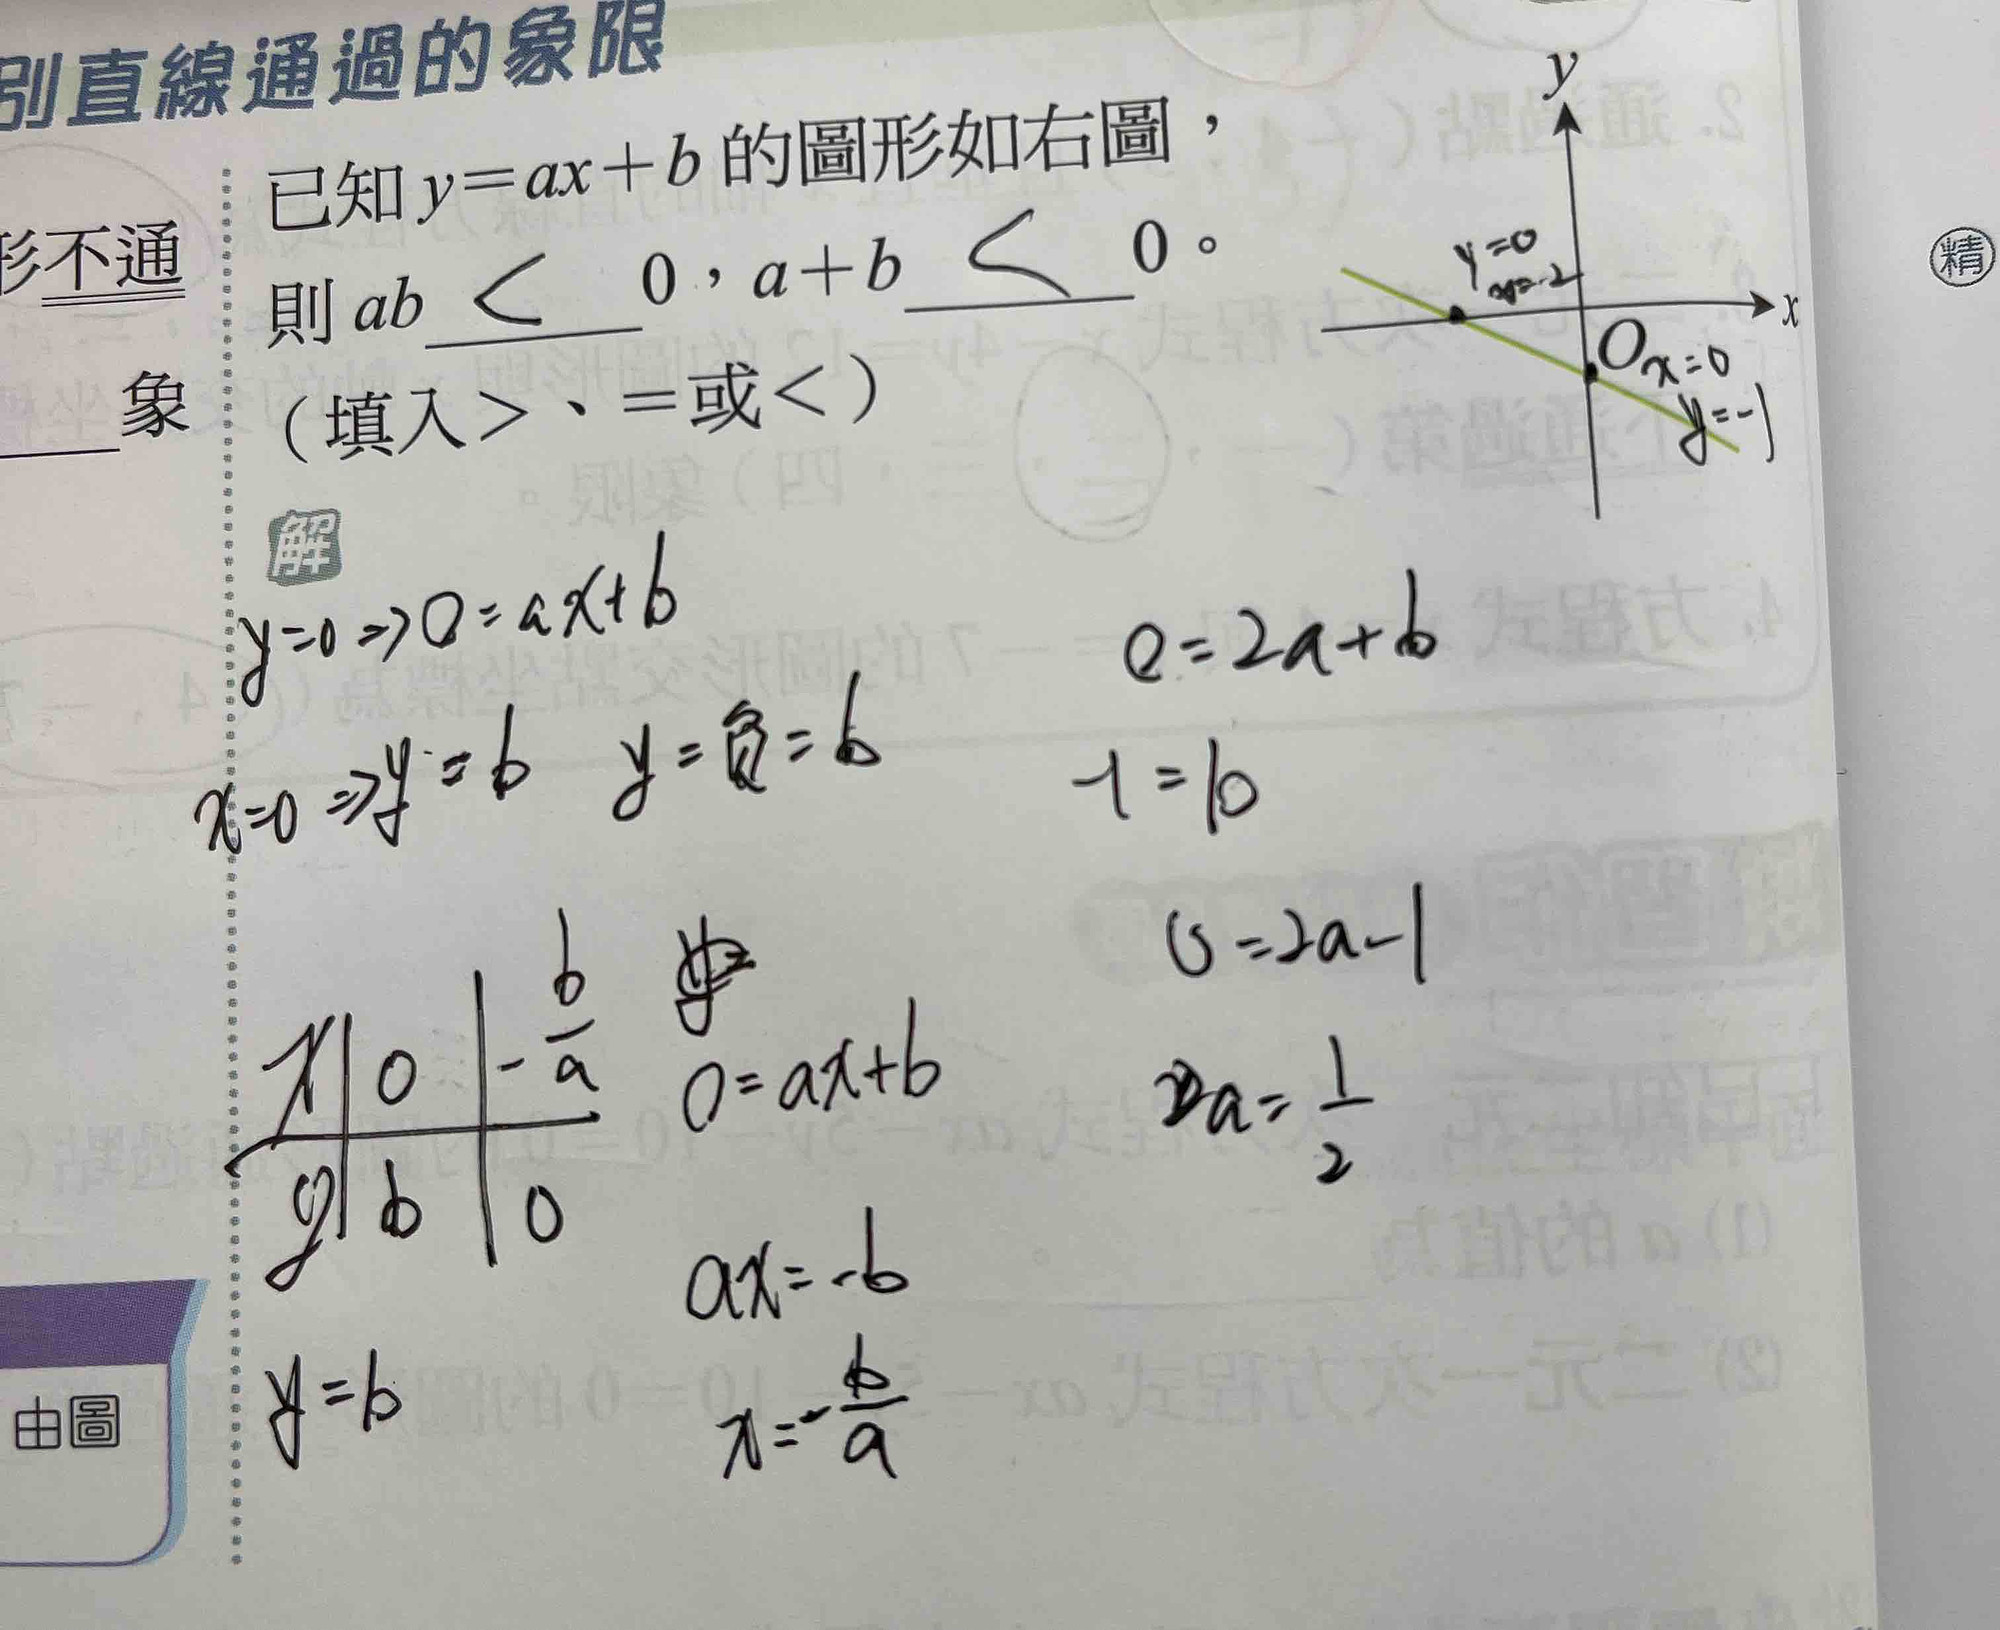 別直線通過的象限
已知y=ax+b的圖形如右圖,
則ab < 0,a+b < 0。
(填入>、=或<)
形不通
象
y
x
O
y=0
x=0
y=-1
精
解
y=0 => 0=ax+b
x=0 => y=b y=負=b
x 0 -b/a
y b 0
y=b
0=ax+b
ax=-b
x=-b/a
0=2a+b
-1=b
0=2a-1
a=1/2
由圖